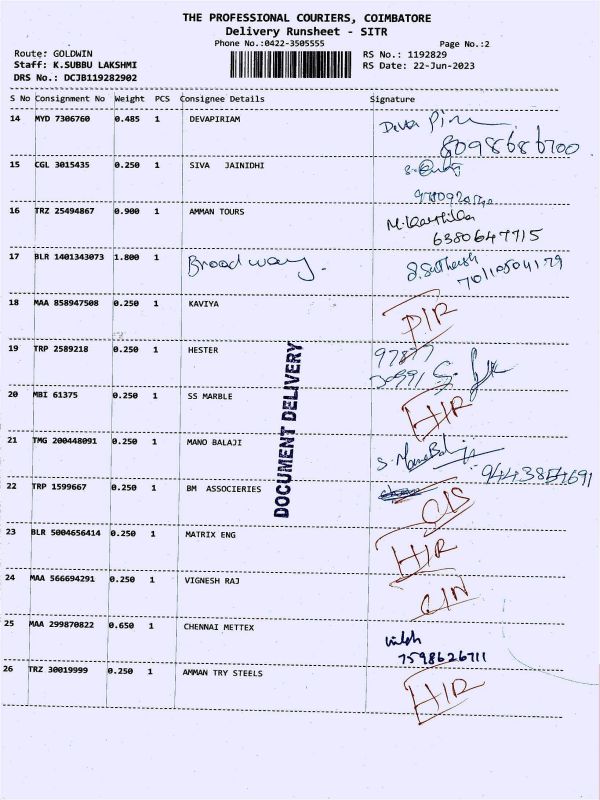 THE PROFESSIONAL COURIERS, COIMBATORE
Delivery Runsheet - SITR
Phone No.:0422-3505555 Page No.:2
Route: GOLDWIN RS No.: 1192829
Staff: K.SUBBU LAKSHMI RS Date: 22-Jun-2023
DRS No.: DCJB119282902
S No Consignment No Weight PCS Consignee Details Signature
14 MYD 7306760 0.485 1 DEVAPIRIAM Deva
8098686700
15 CGL 3015435 0.250 1 SIVA JAINIDHI
16 TRZ 25494867 0.900 1 AMMAN TOURS
6380647715
17 BLR 1401343073 1.800 1 Broadway.
18 MAA 858947508 0.250 1 KAVIYA
19 TRP 2589218 0.250 1 HESTER
20 MBI 61375 0.250 1 SS MARBLE H/R
21 TMG 200448091 0.250 1 MANO BALAJI
22 TRP 1599667 0.250 1 BM ASSOCIERIES
23 BLR 5004656414 0.250 1 MATRIX ENG H/R
24 MAA 566694291 0.250 1 VIGNESH RAJ
25 MAA 299870822 0.650 1 CHENNAI METTEX
7598626711
26 TRZ 30019999 0.250 1 AMMAN TRY STEELS H/R
DOCUMENT DELIVERY